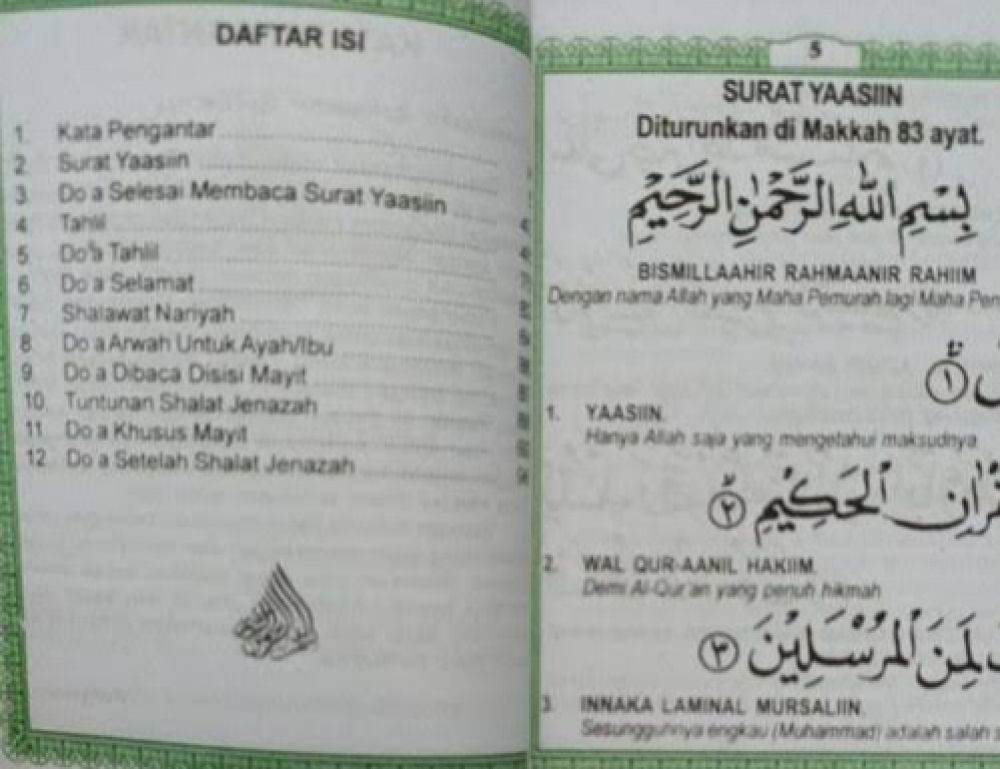 DAFTAR ISI
1. Kata Pengantar
2. Surat Yaasiin
3. Do a Selesai Membaca Surat Yaasiin
4. Tahlil
5. Do'a Tahlil
6. Do a Selamat
7. Shalawat Nariyah
8. Do a Arwah Untuk Ayah/Ibu
9. Do a Dibaca Disisi Mayit
10. Tuntunan Shalat Jenazah
11. Do a Khusus Mayit
12. Do a Setelah Shalat Jenazah
5
SURAT YAASIIN
Diturunkan di Makkah 83 ayat.
بِسْمِ اللهِ الرَّحْمٰنِ الرَّحِيْمِ
BISMILLAAHIR RAHMAANIR RAHIIM
Dengan nama Allah yang Maha Pemurah lagi Maha Pen
١
1. YAASIIN.
Hanya Allah saja yang mengetahui maksudnya
الْحَكِيْمِ ٢
2. WAL QUR-AANIL HAKIIM.
Demi Al-Qur'an yang penuh hikmah
لَمِنَ الْمُرْسَلِيْنَ ٣
3. INNAKA LAMINAL MURSALIIN.
Sesungguhnya engkau (Muhammad) adalah salah s